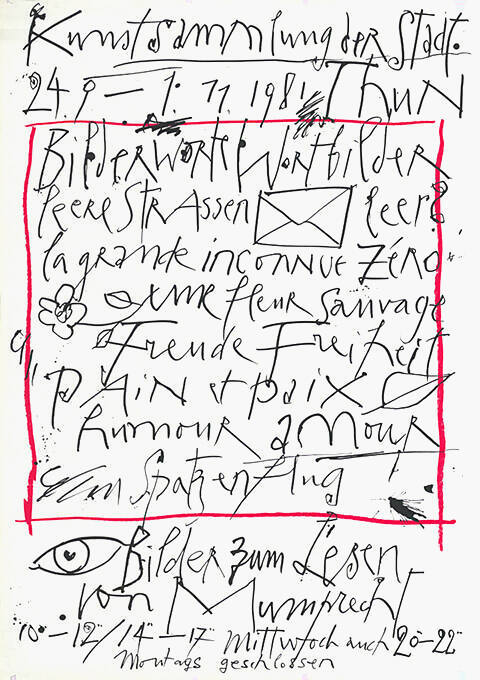 Kunstsammlung der Stadt
24.9 — 1. 11 1981 Thun
BilderWorte Wortbilder
leere Strassen leere
la grande inconnue Zéro
une fleur sauvage
Freude Freiheit
pain et paix
humour amour
im Spatzenflug
Bilder zum Lesen
von Mumprecht
10–12/14–17 Mittwoch auch 20–22
Montags geschlossen